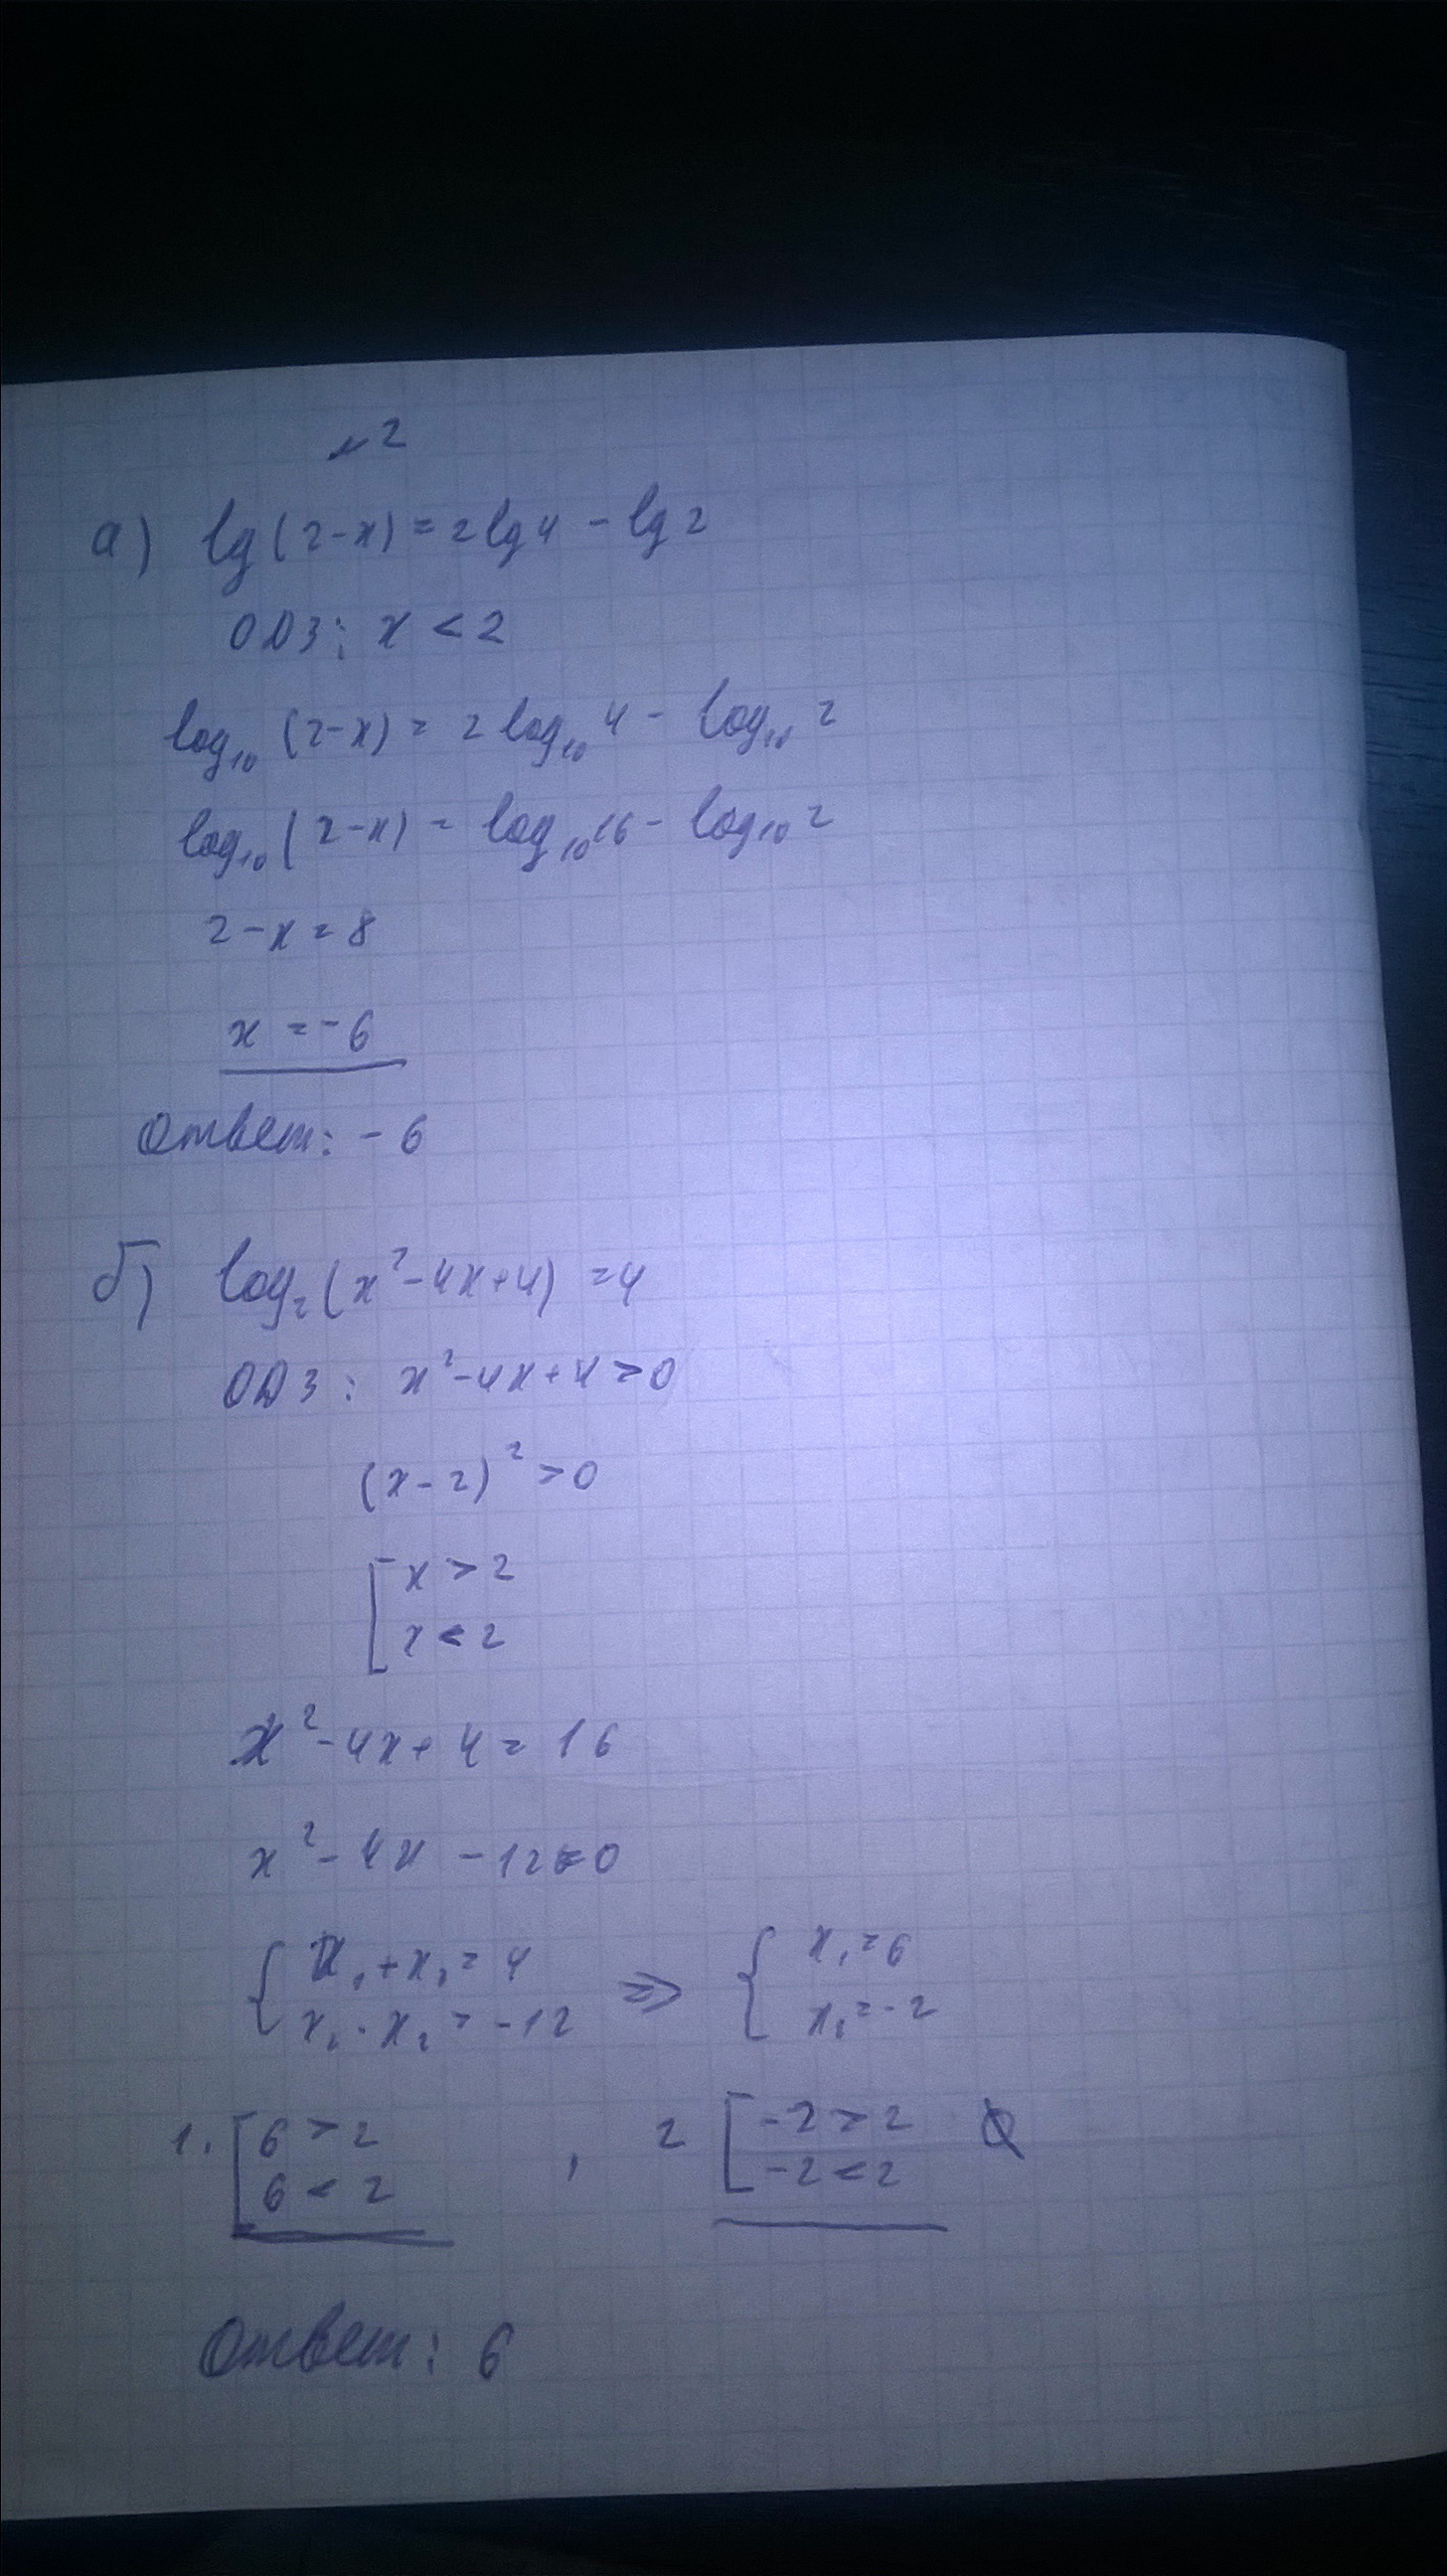 №2
а) lg(2-x)=2lg4-lg2
ОДЗ: x<2
log₁₀(2-x)=2log₁₀4-log₁₀2
log₁₀(2-x)=log₁₀16-log₁₀2
2-x=8
x=-6
Ответ: -6
б) log₂(x²-4x+4)=4
ОДЗ: x²-4x+4>0
(x-2)²>0
[x>2
x<2
x²-4x+4=16
x²-4x-12=0
{x₁+x₂=4 => {x₁=6
x₁·x₂=-12 x₂=-2
1. [6>2 , 2 [-2>2
6<2 -2<2
Ответ: 6